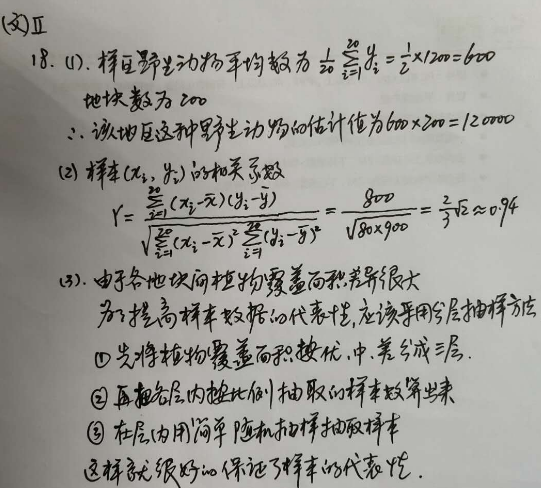 (文)Ⅱ
18. (1). 样区野生动物平均数为 1/20 ∑_{i=1}^{20} y_i = 1/2 × 1200 = 600
地块数为 200
∴ 该地区这种野生动物的估计值为 600×200=120000
(2) 样本(x_i, y_i)的相关系数
r = ∑_{i=1}^{20}(x_i-x̄)(y_i-ȳ) / √(∑_{i=1}^{20}(x_i-x̄)² ∑_{i=1}^{20}(y_i-ȳ)²) = 800/√(80×900) = 2/3 √2 ≈ 0.94
(3). 由于各地块间植物覆盖面积差异很大
为了提高样本数据的代表性,应该采用分层抽样方法
① 先将植物覆盖面积按优、中、差分成三层.
② 再把各层内按比例抽取的样本数算出来
③ 在层内用简单随机抽样抽取样本
这样就很好的保证了样本的代表性.